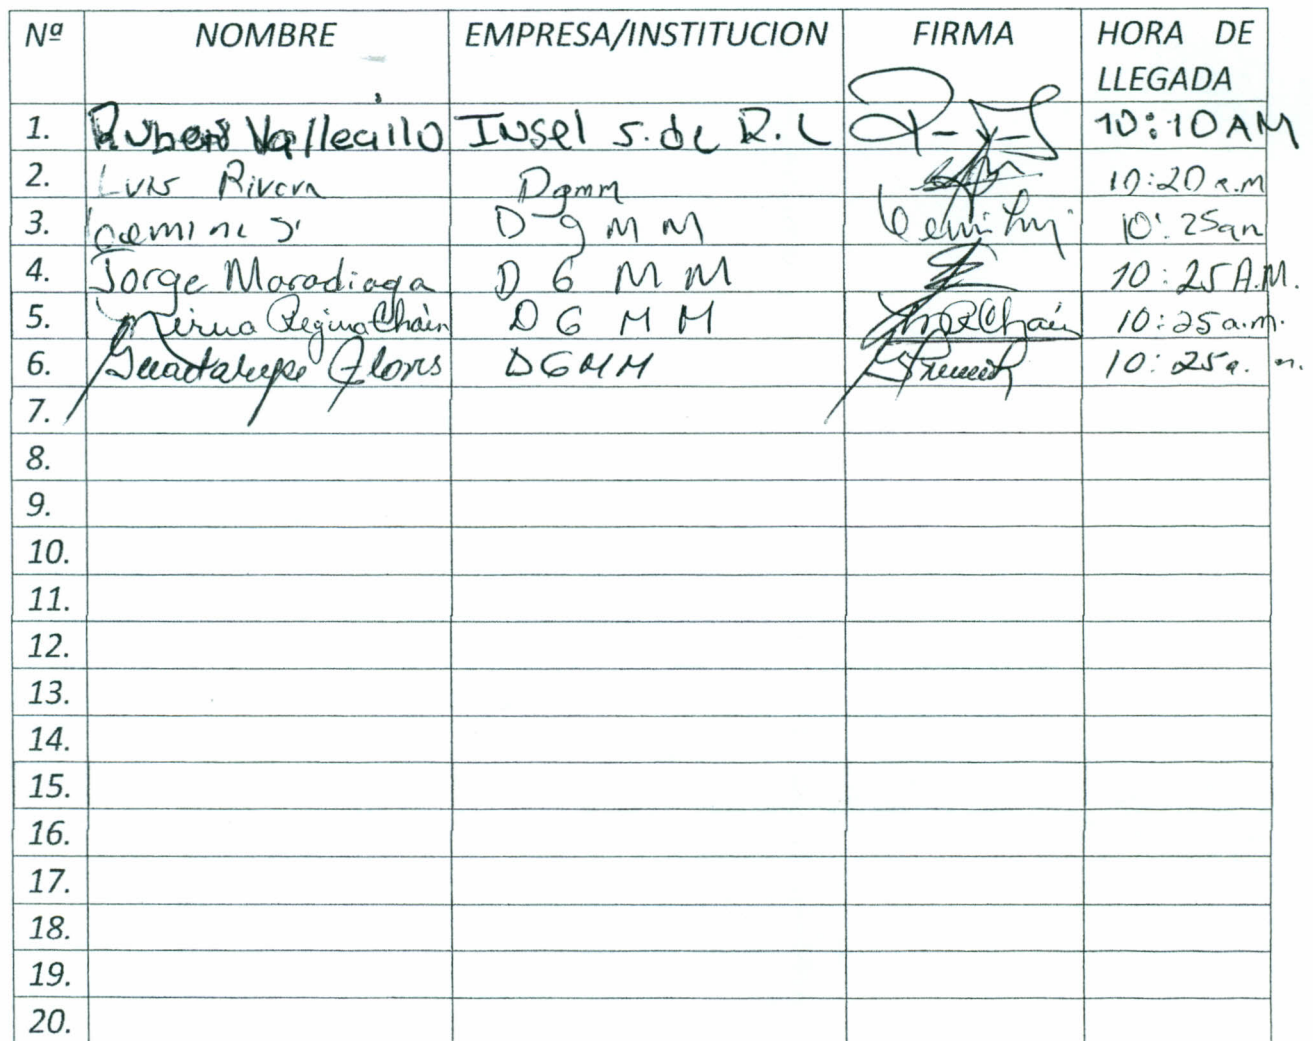 Nº NOMBRE EMPRESA/INSTITUCION FIRMA HORA DE LLEGADA
1. Ruben Vallecillo Insel S. de R. L 10:10 AM
2. Luis Rivera Dgmm 10:20 a.m
3. D g M M 10:25 am
4. Jorge Maradiaga D G M M 10:25 A.M.
5. Mirna Regina Chaín D G M M Chaín 10:25 a.m.
6. Guadalupe Flores DGMM 10:25 a. m.
7.
8.
9.
10.
11.
12.
13.
14.
15.
16.
17.
18.
19.
20.